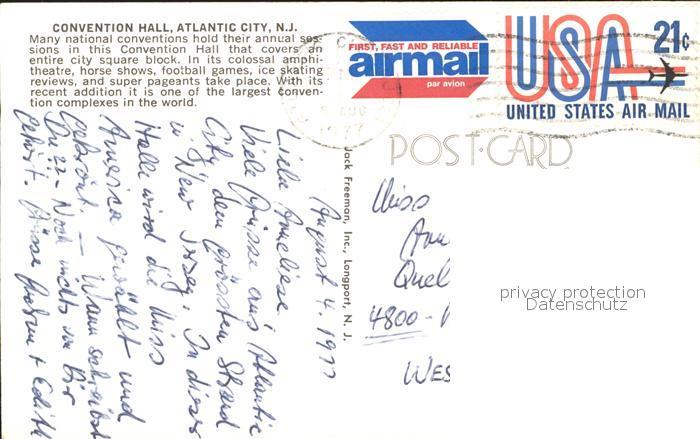 CONVENTION HALL, ATLANTIC CITY, N.J.
Many national conventions hold their annual ses-
sions in this Convention Hall that covers an
entire city square block. In its colossal amphi-
theatre, horse shows, football games, ice skating
reviews, and super pageants take place. With its
recent addition it is one of the largest conven-
tion complexes in the world.
FIRST, FAST AND RELIABLE
airmail
par avion
USA
21¢
UNITED STATES AIR MAIL
POST-CARD
Jack Freeman, Inc., Longport, N. J.
August 4. 1977
Liebe Anneliese
Viele Grüsse aus Atlantic
City dem grössten Strand
in New Jersey. In dieser
Halle wird die Miss
America gewählt und
gekrönt. — Wann schreibst
Du ?? - Noch nichts von Dir
gehört. Grüsse + Edith
Miss
Ann
Quel
4800-
WES
privacy protection
Datenschutz